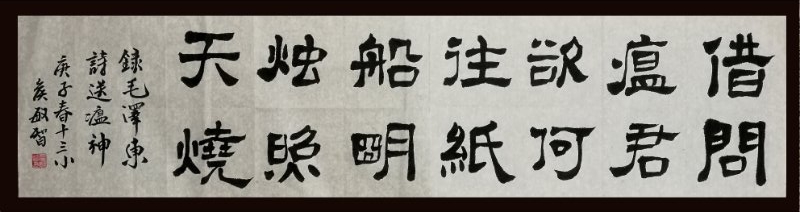 借問
瘟君
欲何
往紙
船明
烛照
天燒
錄毛澤東
詩送瘟神
庚子春十三小